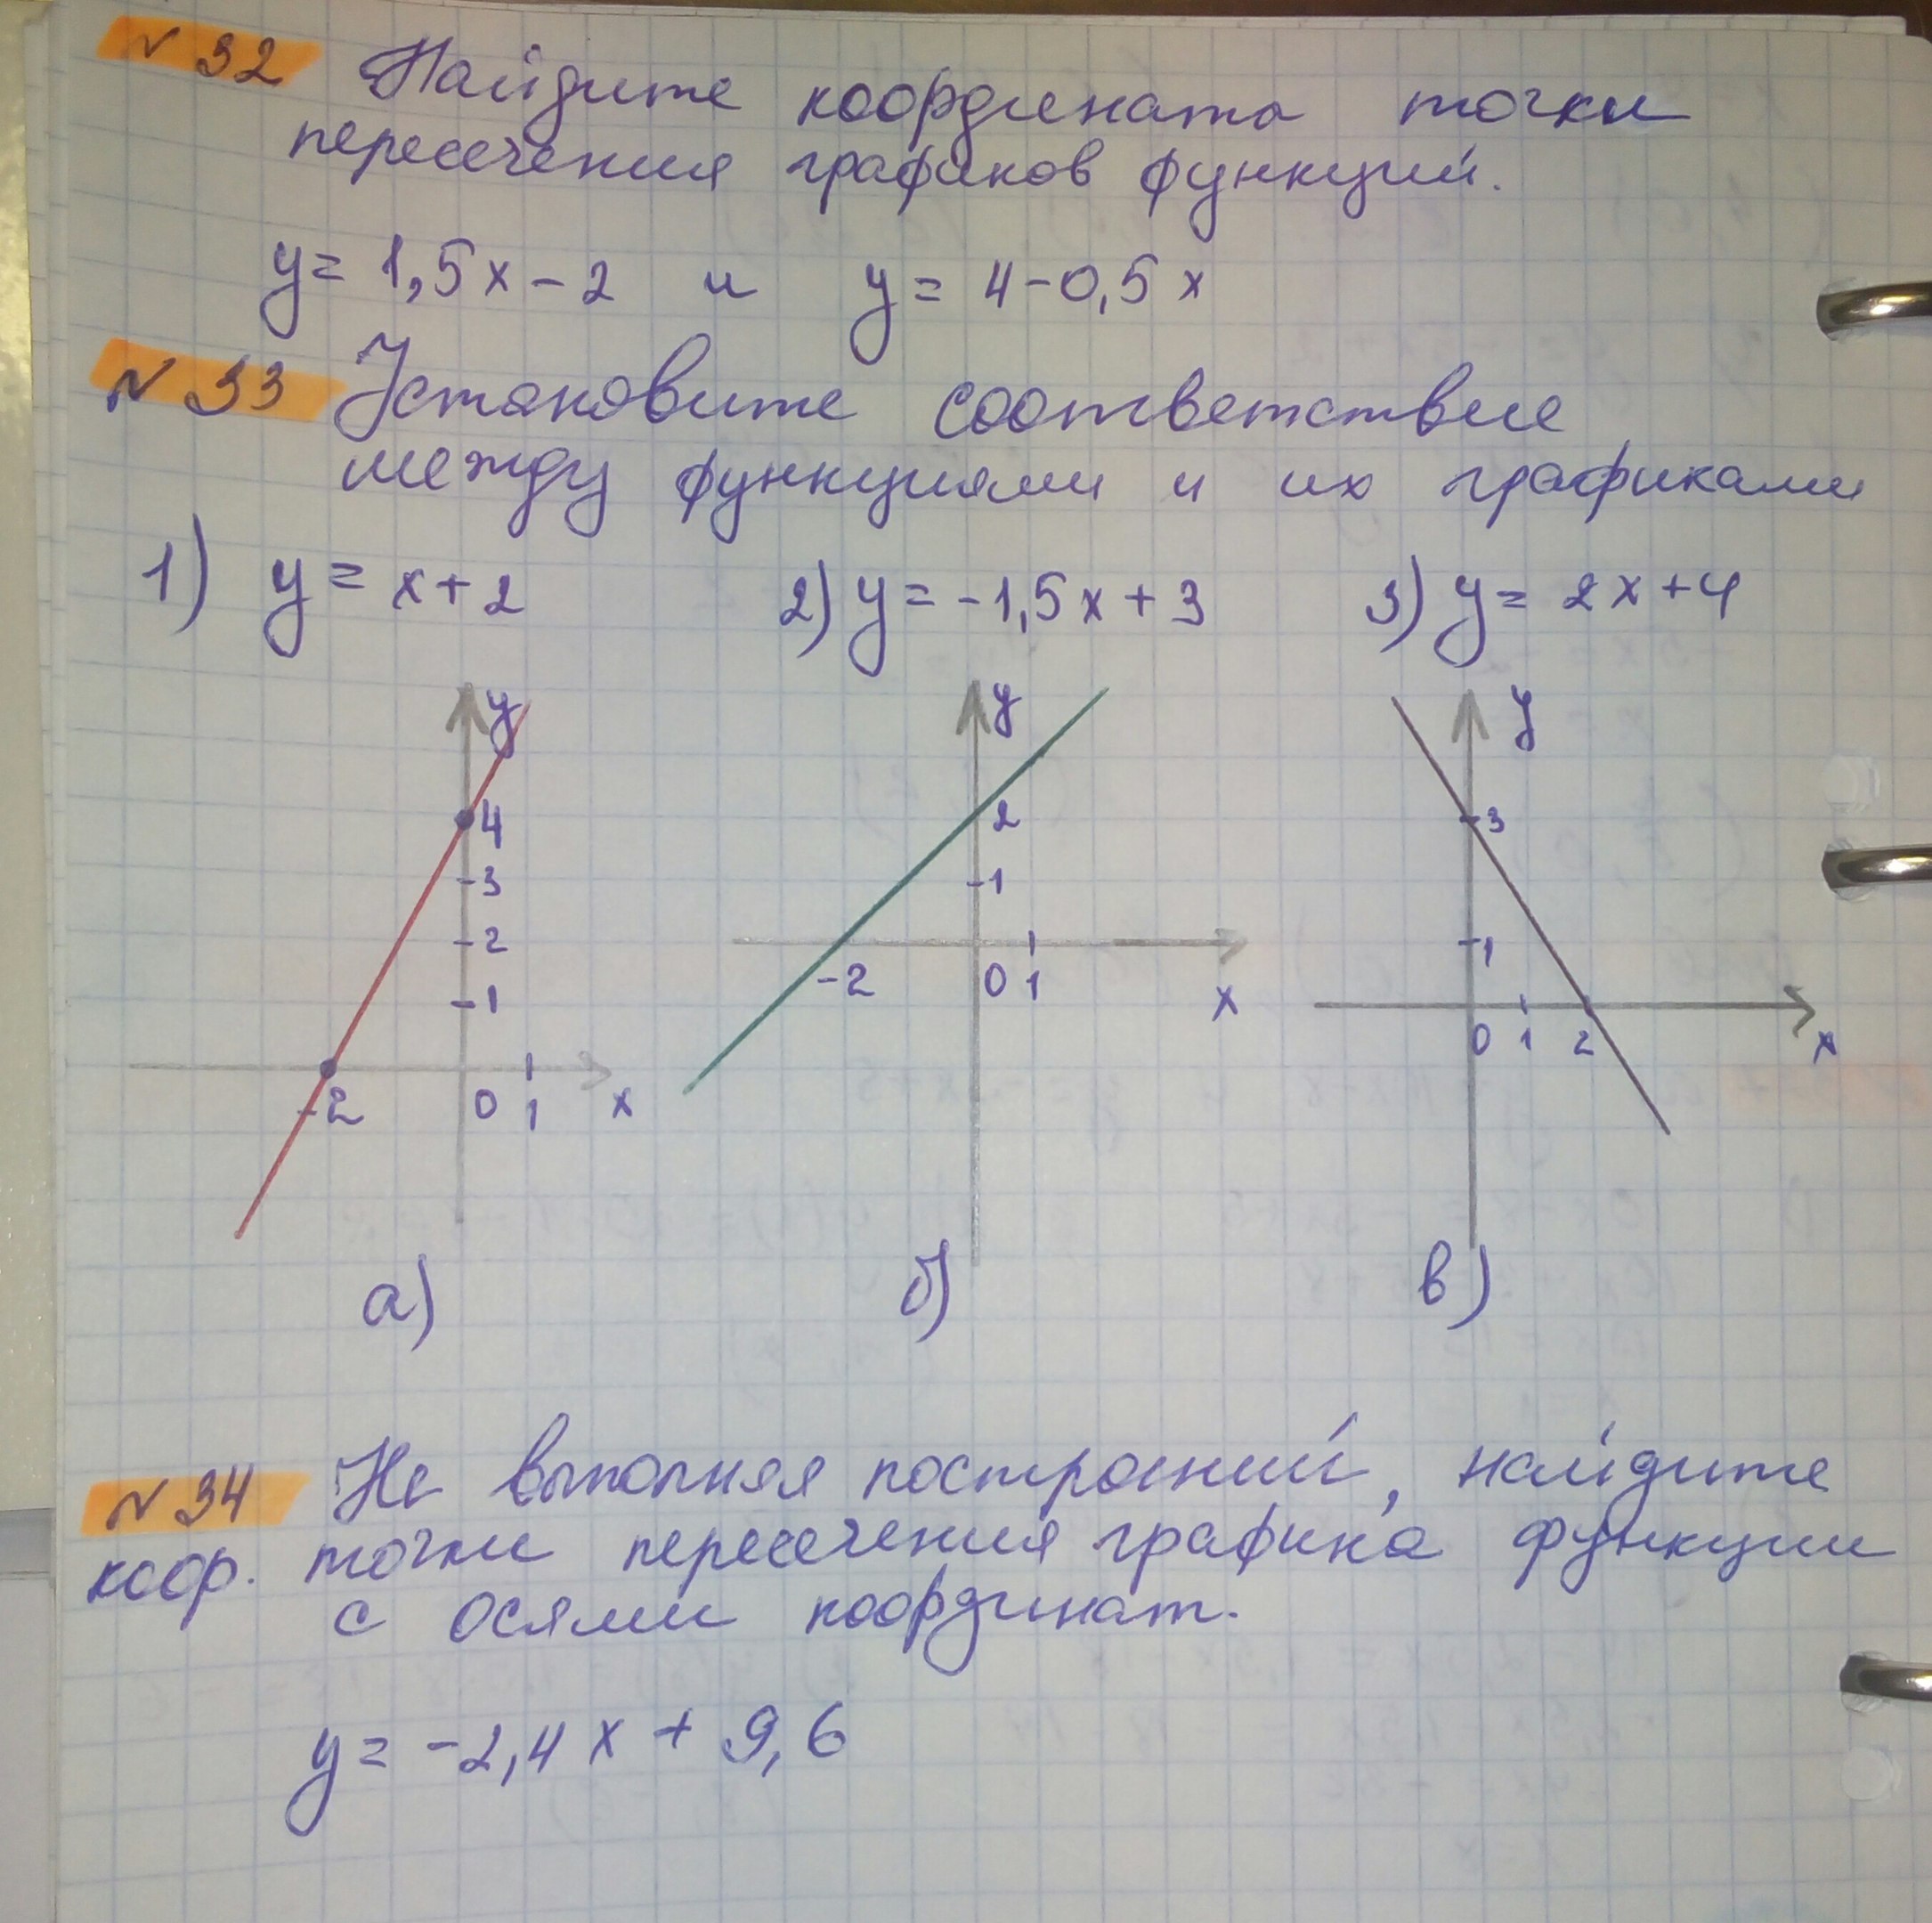 № 32 Найдите координаты точки
пересечения графиков функций.
y = 1,5x - 2 и y = 4 - 0,5x
№ 33 Установите соответствие
между функциями и их графиками
1) y = x + 2 2) y = -1,5x + 3 3) y = 2x + 4
y 4 3 2 1 -2 0 1 x
y 2 1 -2 0 1 x
y 3 1 0 1 2 x
а) б) в)
№ 34 Не выполняя построений, найдите
коор. точки пересечения графика функции
с осями координат.
y = -2,4x + 9,6